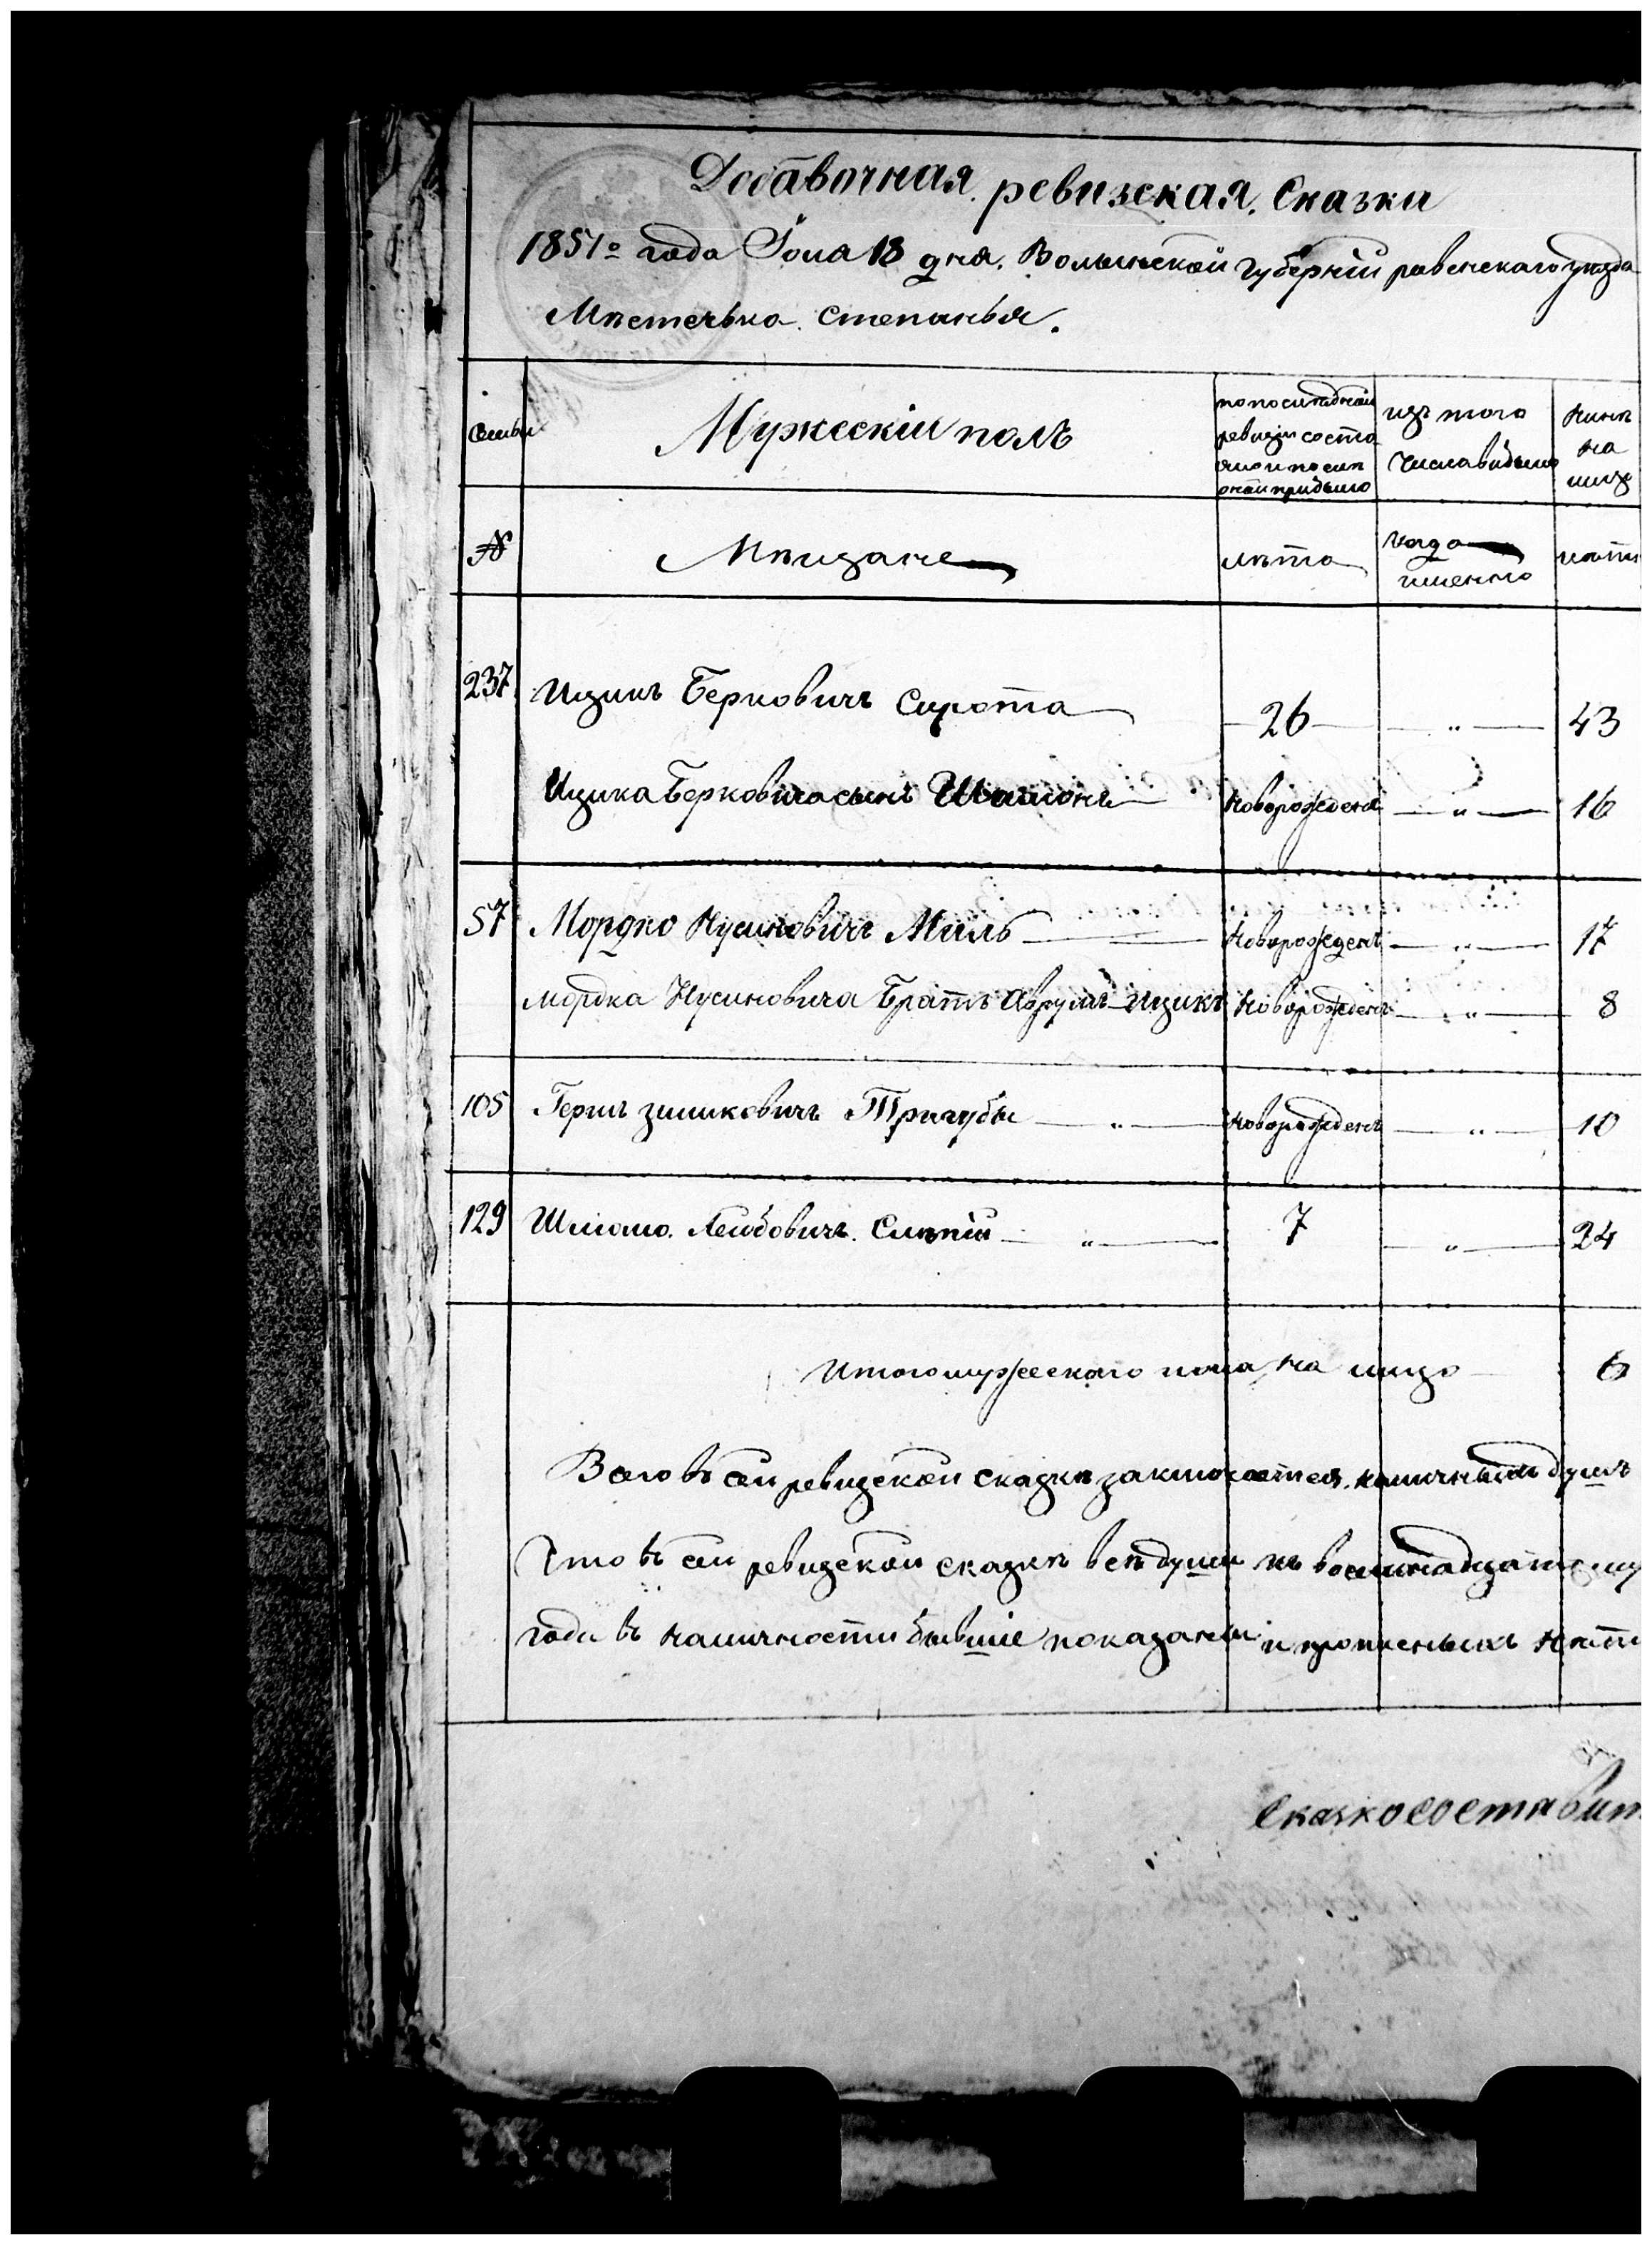 Добавочная ревизская Сказки
1851о года Іюля 18 дня. Волынской губерніи ровенскаго уезда
Мѣстечька Степанья.
семьи
Мужескій полъ
по последней
ревизіи состо
яло и после
оной прибыло
изъ того
числа выбыло
нынѣ
на
лицо
№
Мѣщане
лѣта
когда
имѣнно
лѣта
237 Ицикъ Берковичъ Сирота 26 " 43
Ицика Берковича сынъ новорожденъ " 16
57 Мордко Нусиновичъ Миль новорожденъ " 17
Мордка Нусиновича Братъ Аврумъ Ицикъ новорожденъ " 8
105 Герш зимиковичъ Тригубы " новорожденъ " 10
129 Шліомо. Лейбовичъ. Слѣпій " 7 " 24
Итого мужескаго пола на лицо 6
Всего въ сей ревизской сказкѣ заключается наличныхъ душъ
Что въ сей ревизской сказкѣ всѣ души къ восимнадцатому
года въ наличности бывшіе показаны и нѣтъ
Сказко